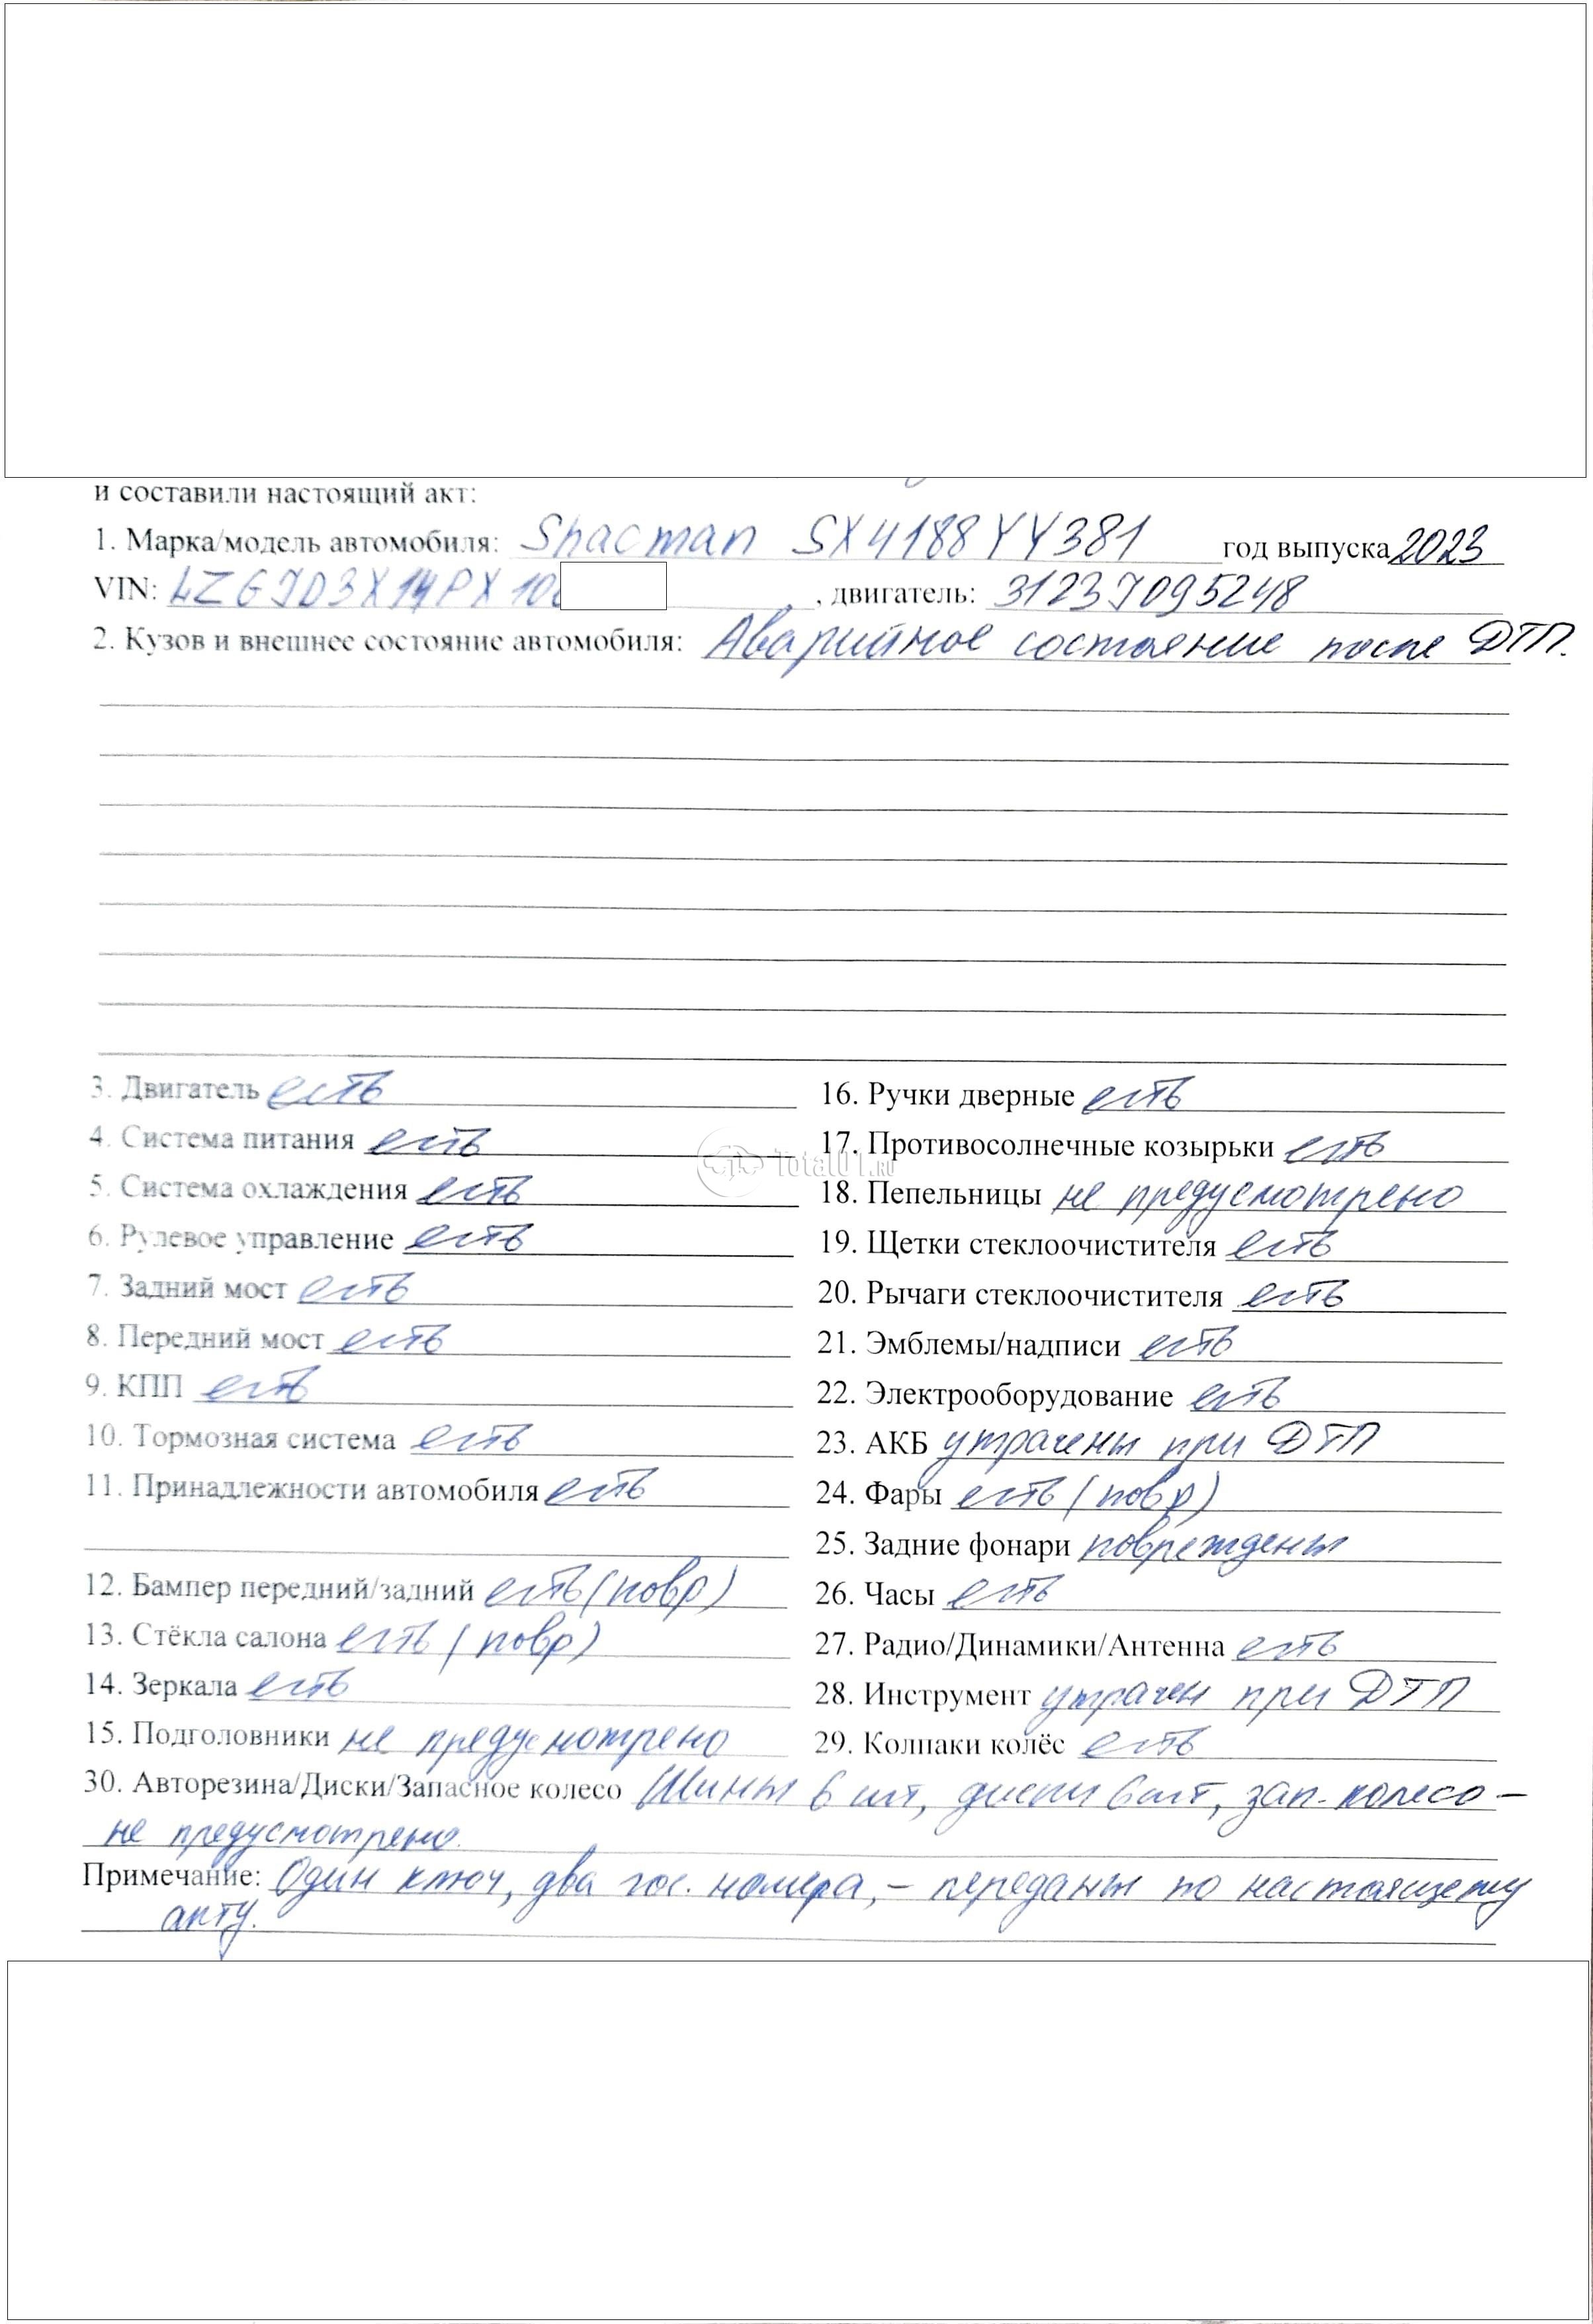 и составили настоящий акт:
1. Марка/модель автомобиля: Shacman SX4188YY381 год выпуска 2023
VIN: LZGJD3X14PX10 , двигатель: 3123J095248
2. Кузов и внешнее состояние автомобиля: Аварийное состояние после ДТП.
3. Двигатель есть
4. Система питания есть
5. Система охлаждения есть
6. Рулевое управление есть
7. Задний мост есть
8. Передний мост есть
9. КПП есть
10. Тормозная система есть
11. Принадлежности автомобиля есть
12. Бампер передний/задний есть (повр)
13. Стёкла салона есть (повр)
14. Зеркала есть
15. Подголовники не предусмотрено
16. Ручки дверные есть
17. Противосолнечные козырьки есть
18. Пепельницы не предусмотрено
19. Щетки стеклоочистителя есть
20. Рычаги стеклоочистителя есть
21. Эмблемы/надписи есть
22. Электрооборудование есть
23. АКБ утрачены при ДТП
24. Фары есть (повр)
25. Задние фонари повреждены
26. Часы есть
27. Радио/Динамики/Антенна есть
28. Инструмент утрачен при ДТП
29. Колпаки колёс есть
30. Авторезина/Диски/Запасное колесо Шины 6 шт, диски 6 шт, зап. колесо –
не предусмотрено.
Примечание: Один ключ, два гос. номера, – переданы по настоящему
акту.
Total01.RU